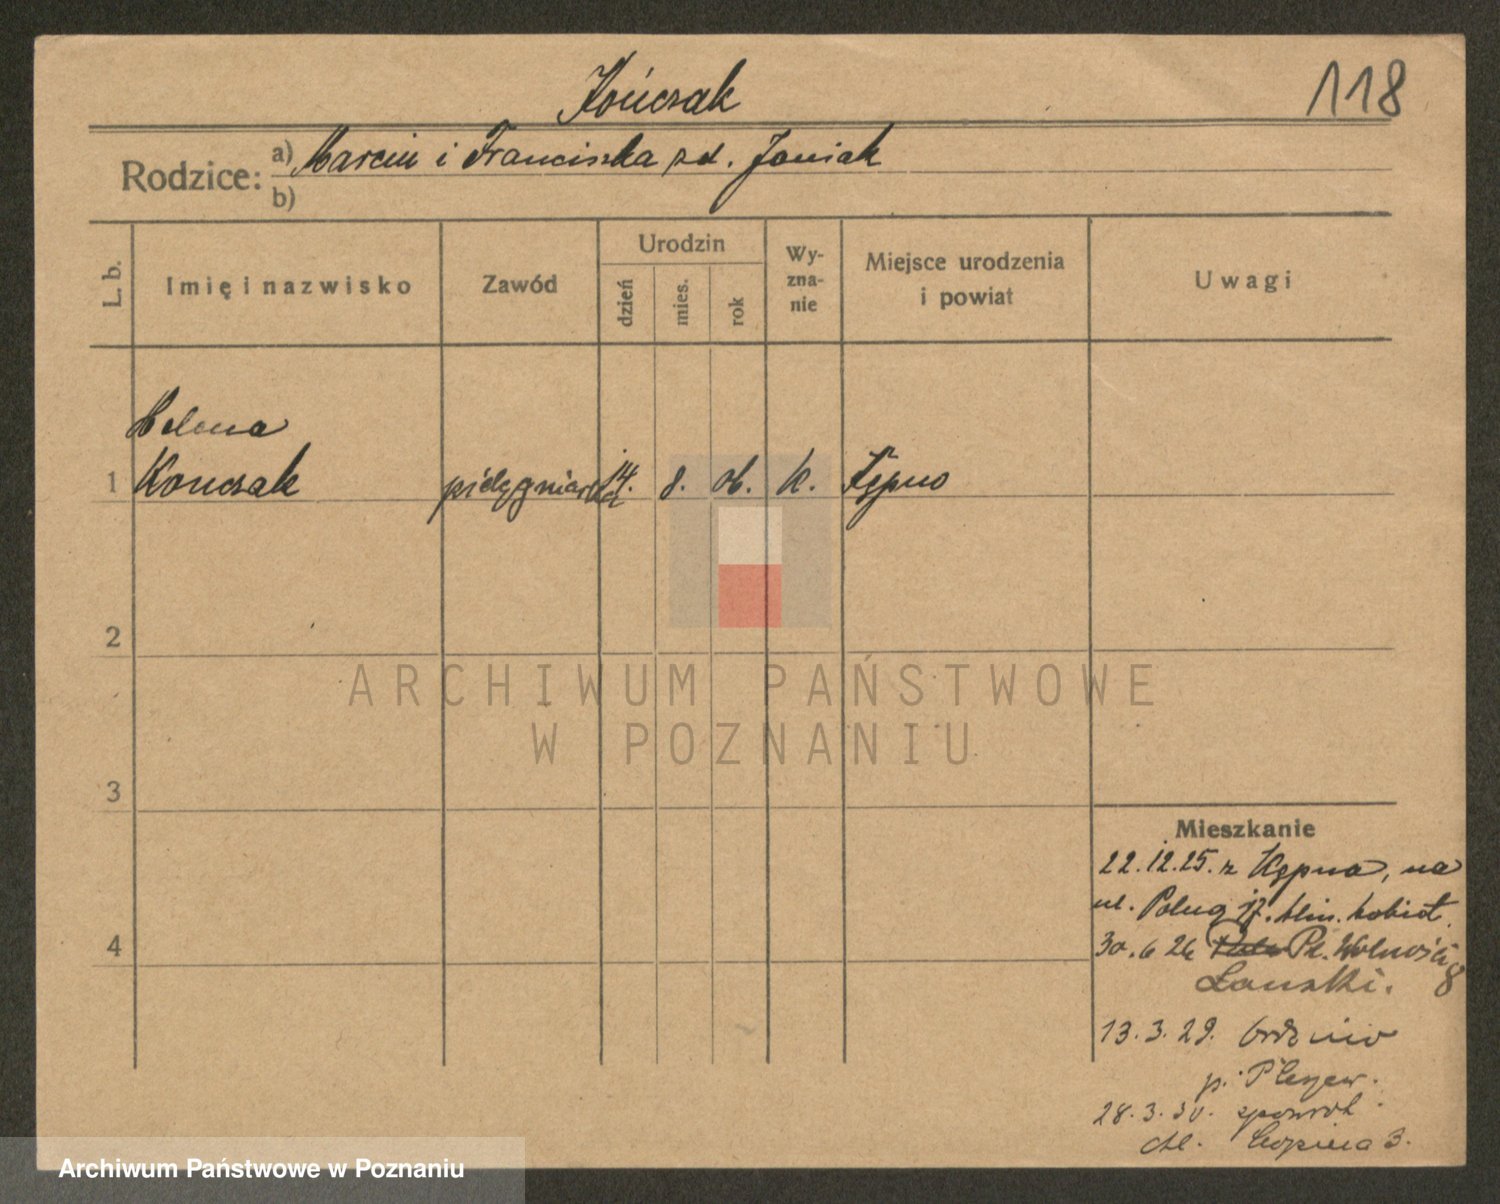 Kończak
118
Rodzice: a) Marcin i Franciszka zd. Janiak
b)
L. b.
Imię i nazwisko
Zawód
Urodzin
dzień
mies.
rok
Wy-
zna-
nie
Miejsce urodzenia
i powiat
Uwagi
Helena
1 Konczak pielęgniarka 14. 8. 06. k. Kępno
2
3
4
Mieszkanie
22.12.25. z Kępna, na
ul. Polną klin. kobiet.
30.6 26 Pl. Wolności 8
Lanski.
13.3.29.
p. Pleszew.
28.3.30. zpowrot
3.
ARCHIWUM PAŃSTWOWE
W POZNANIU
Archiwum Państwowe w Poznaniu